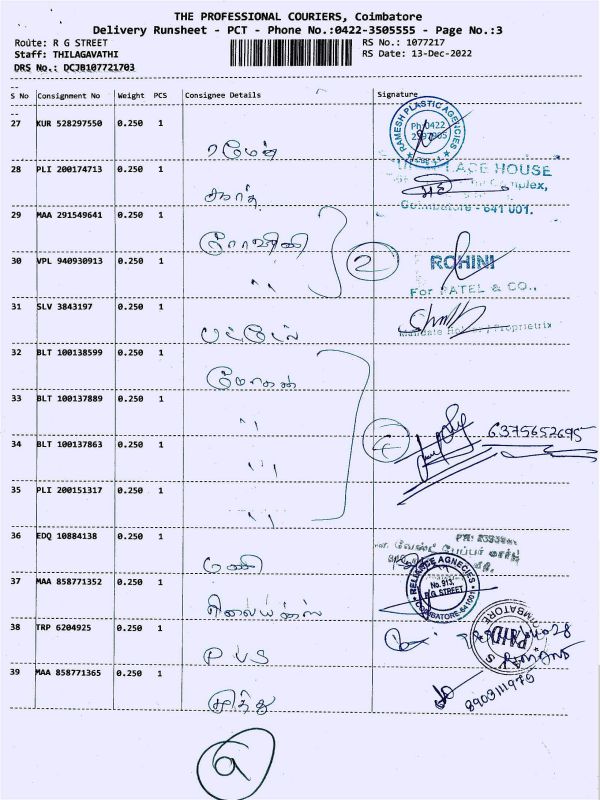 THE PROFESSIONAL COURIERS, Coimbatore
Delivery Runsheet - PCT - Phone No.:0422-3505555 - Page No.:3
Route: R G STREET
RS No.: 1077217
Staff: THILAGAVATHI
RS Date: 13-Dec-2022
DRS No.: DCJB107721703
S No Consignment No Weight PCS Consignee Details Signature
27 KUR 528297550 0.250 1
ரமேஷ்
RAMESH PLASTIC AGENCIES
28 PLI 200174713 0.250 1
LACE HOUSE
Complex,
Coimbatore - 641 001.
29 MAA 291549641 0.250 1
ரோகிணி
30 VPL 940930913 0.250 1
"
2
ROHINI
For PATEL & CO.,
31 SLV 3843197 0.250 1
பட்டேல்
Proprietrix
32 BLT 100138599 0.250 1
மோகன்
33 BLT 100137889 0.250 1
"
34 BLT 100137863 0.250 1
"
4
6375652695
35 PLI 200151317 0.250 1
"
36 EDQ 10884138 0.250 1
மணி
37 MAA 858771352 0.250 1
ரிலையன்ஸ்
RELIANCE AGNECIES
No. 913,
R.G. STREET
COIMBATORE-641001
38 TRP 6204925 0.250 1
PVS
PAID
39 MAA 858771365 0.250 1
சித்து
8903111975